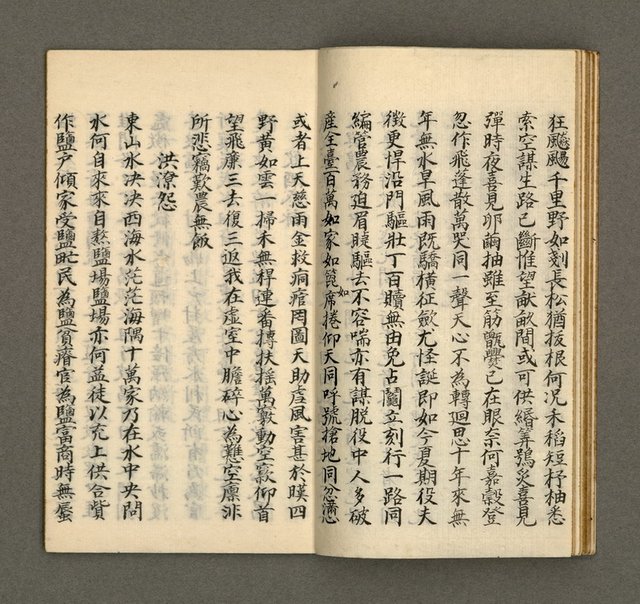 狂飈颺千里野如剡長松猶拔根何况禾稻短杼柚悉
索空謀生路已斷惟望畎畝間或可供緡筭鴞災喜見
彈時夜喜見卵繭抽雖至筋甑爨已在眼奈何嘉穀登
忽作飛蓬散萬哭同一聲天心不為轉迴思十年來無
年無水旱風雨既驕橫征斂尤怪誕即如今夏期役夫
徵更悍沿門驅壯丁百贖無由免占闔立刻行一路同
編管農務迫眉睫驅去不容喘亦有謀脫役中人多破
産全臺百萬如家如箆如席捲仰天同呼號搶地同忿懣
或者上天慈雨金救痌瘝罔圖天助虐風害甚於暵四
野黃如雲一掃禾無桿連番摶扶搖萬籔動空窾仰首
望飛廉三去復三返我在虛室中膽碎心為難空廪非
所悲竊歎農無飯
洪潦怨
東山水決决西海水茫茫海隅十萬家乃在水中央問
水何自來來自熬鹽場鹽場亦何益徒以充上供合貲
作鹽戶傾家受鹽眈民為鹽貧瘠官為鹽富商時無蜃